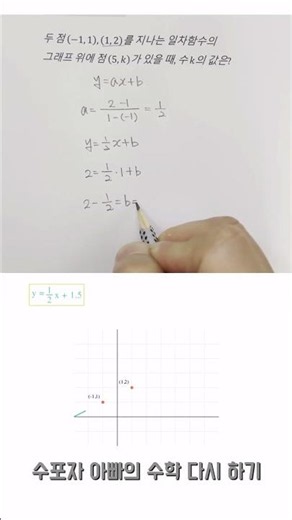 두 점 (−1, 1), (1, 2)를 지나는 일차함수의
그래프 위에 점 (5, k)가 있을 때, 수 k의 값은?
y = ax + b
a = \frac{2-1}{1-(-1)} = \frac{1}{2}
y = \frac{1}{2}x + b
2 = \frac{1}{2} · 1 + b
2 - \frac{1}{2} = b =
y = \frac{1}{2}x + 1.5
(1,2)
(-1,1)
수포자 아빠의 수학 다시 하기